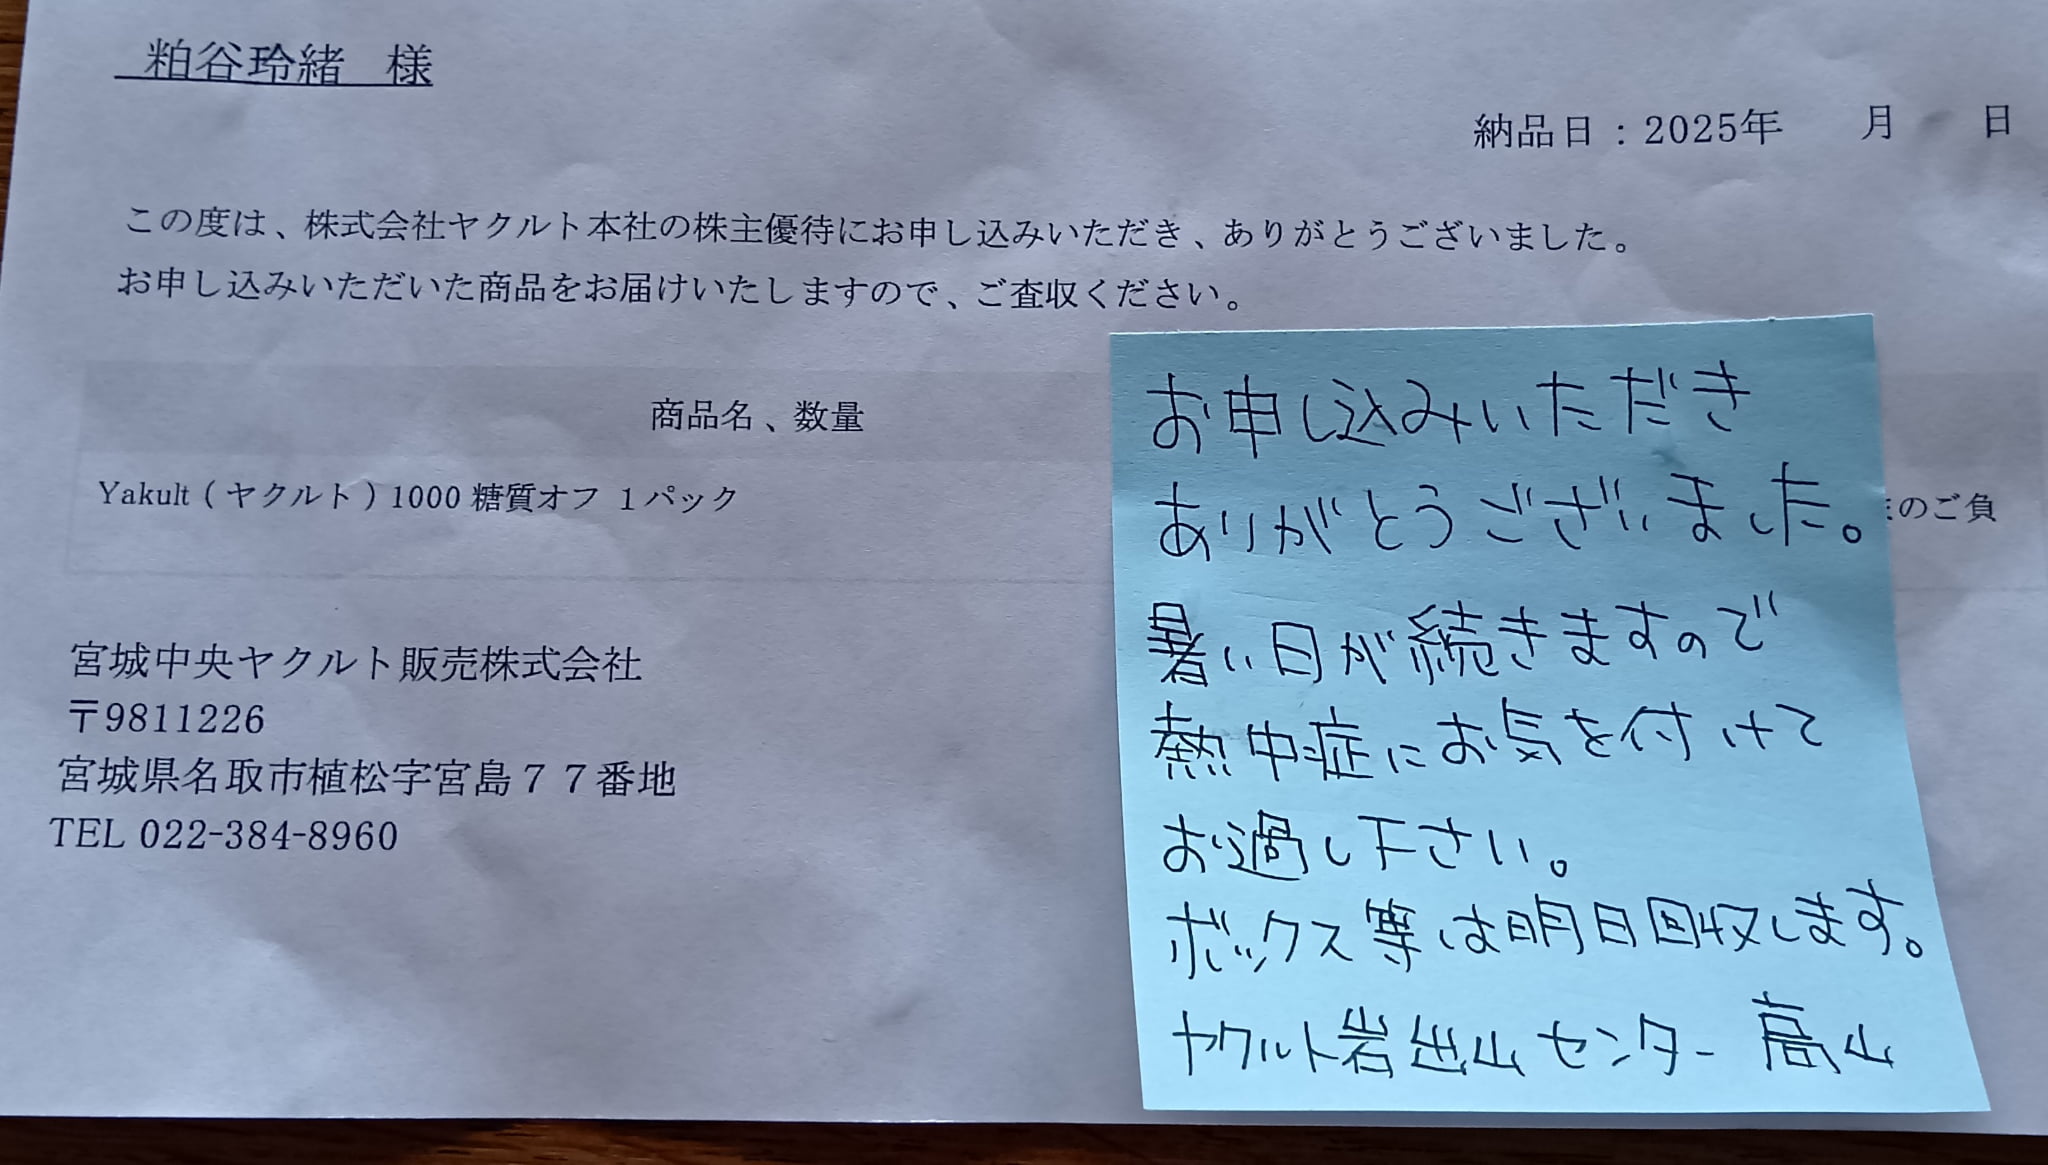 粕谷玲緒　様
納品日：2025年　　月　　日
この度は、株式会社ヤクルト本社の株主優待にお申し込みいただき、ありがとうございました。
お申し込みいただいた商品をお届けいたしますので、ご査収ください。
商品名、数量
Yakult（ヤクルト）1000 糖質オフ １パック
のご負
宮城中央ヤクルト販売株式会社
〒9811226
宮城県名取市植松字宮島７７番地
TEL 022-384-8960
お申し込みいただき
ありがとうございました。
暑い日が続きますので
熱中症にお気を付けて
お過し下さい。
ボックス等は明日回収します。
ヤクルト岩出山センター 高山